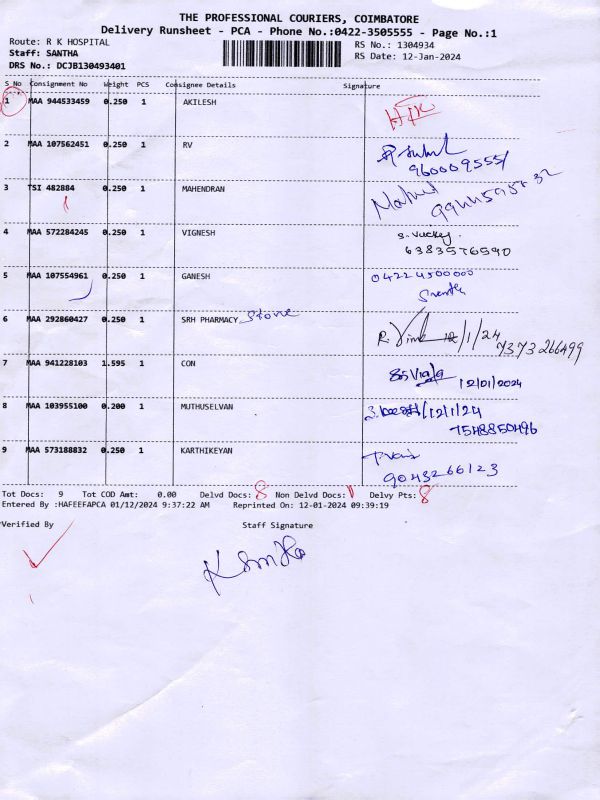 THE PROFESSIONAL COURIERS, COIMBATORE
Delivery Runsheet - PCA - Phone No.:0422-3505555 - Page No.:1
Route: R K HOSPITAL RS No.: 1304934
Staff: SANTHA RS Date: 12-Jan-2024
DRS No.: DCJB130493401
S No Consignment No Weight PCS Consignee Details Signature
1 MAA 944533459 0.250 1 AKILESH
2 MAA 107562451 0.250 1 RV
9600095551
3 TSI 482884 0.250 1 MAHENDRAN
4 MAA 572284245 0.250 1 VIGNESH S. Vuckey.
6383576590
5 MAA 107554961 0.250 1 GANESH 04224500000
6 MAA 292860427 0.250 1 SRH PHARMACY Store R. 12/1/24
7373266499
7 MAA 941228103 1.595 1 CON
12/01/2024
8 MAA 103955100 0.200 1 MUTHUSELVAN 12/1/24
7548850496
9 MAA 573188832 0.250 1 KARTHIKEYAN
9043266123
Tot Docs: 9 Tot COD Amt: 0.00 Delvd Docs: 8 Non Delvd Docs: 1 Delvy Pts: 8
Entered By :HAFEEFAPCA 01/12/2024 9:37:22 AM Reprinted On: 12-01-2024 09:39:19
Verified By Staff Signature